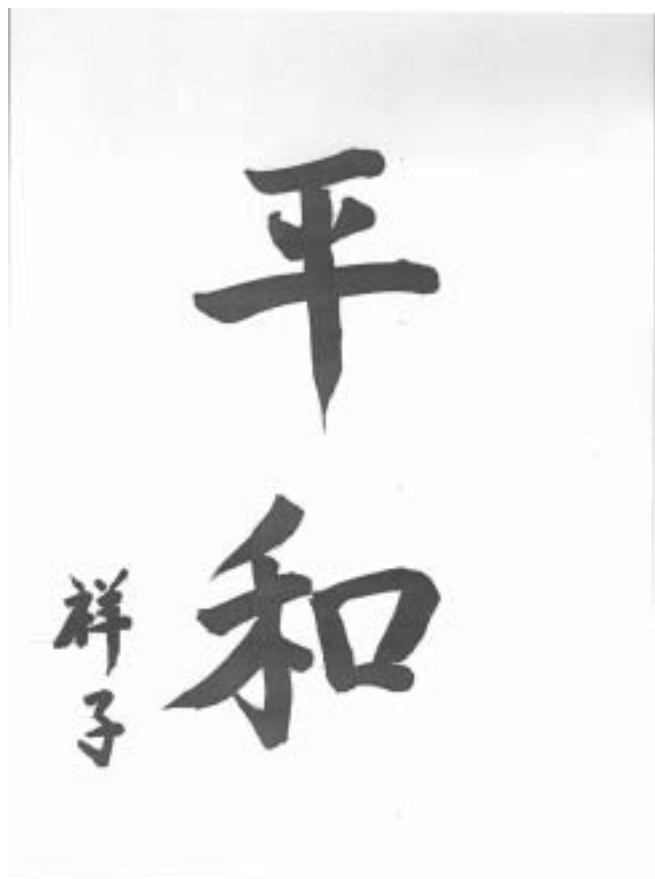 平和
祥子